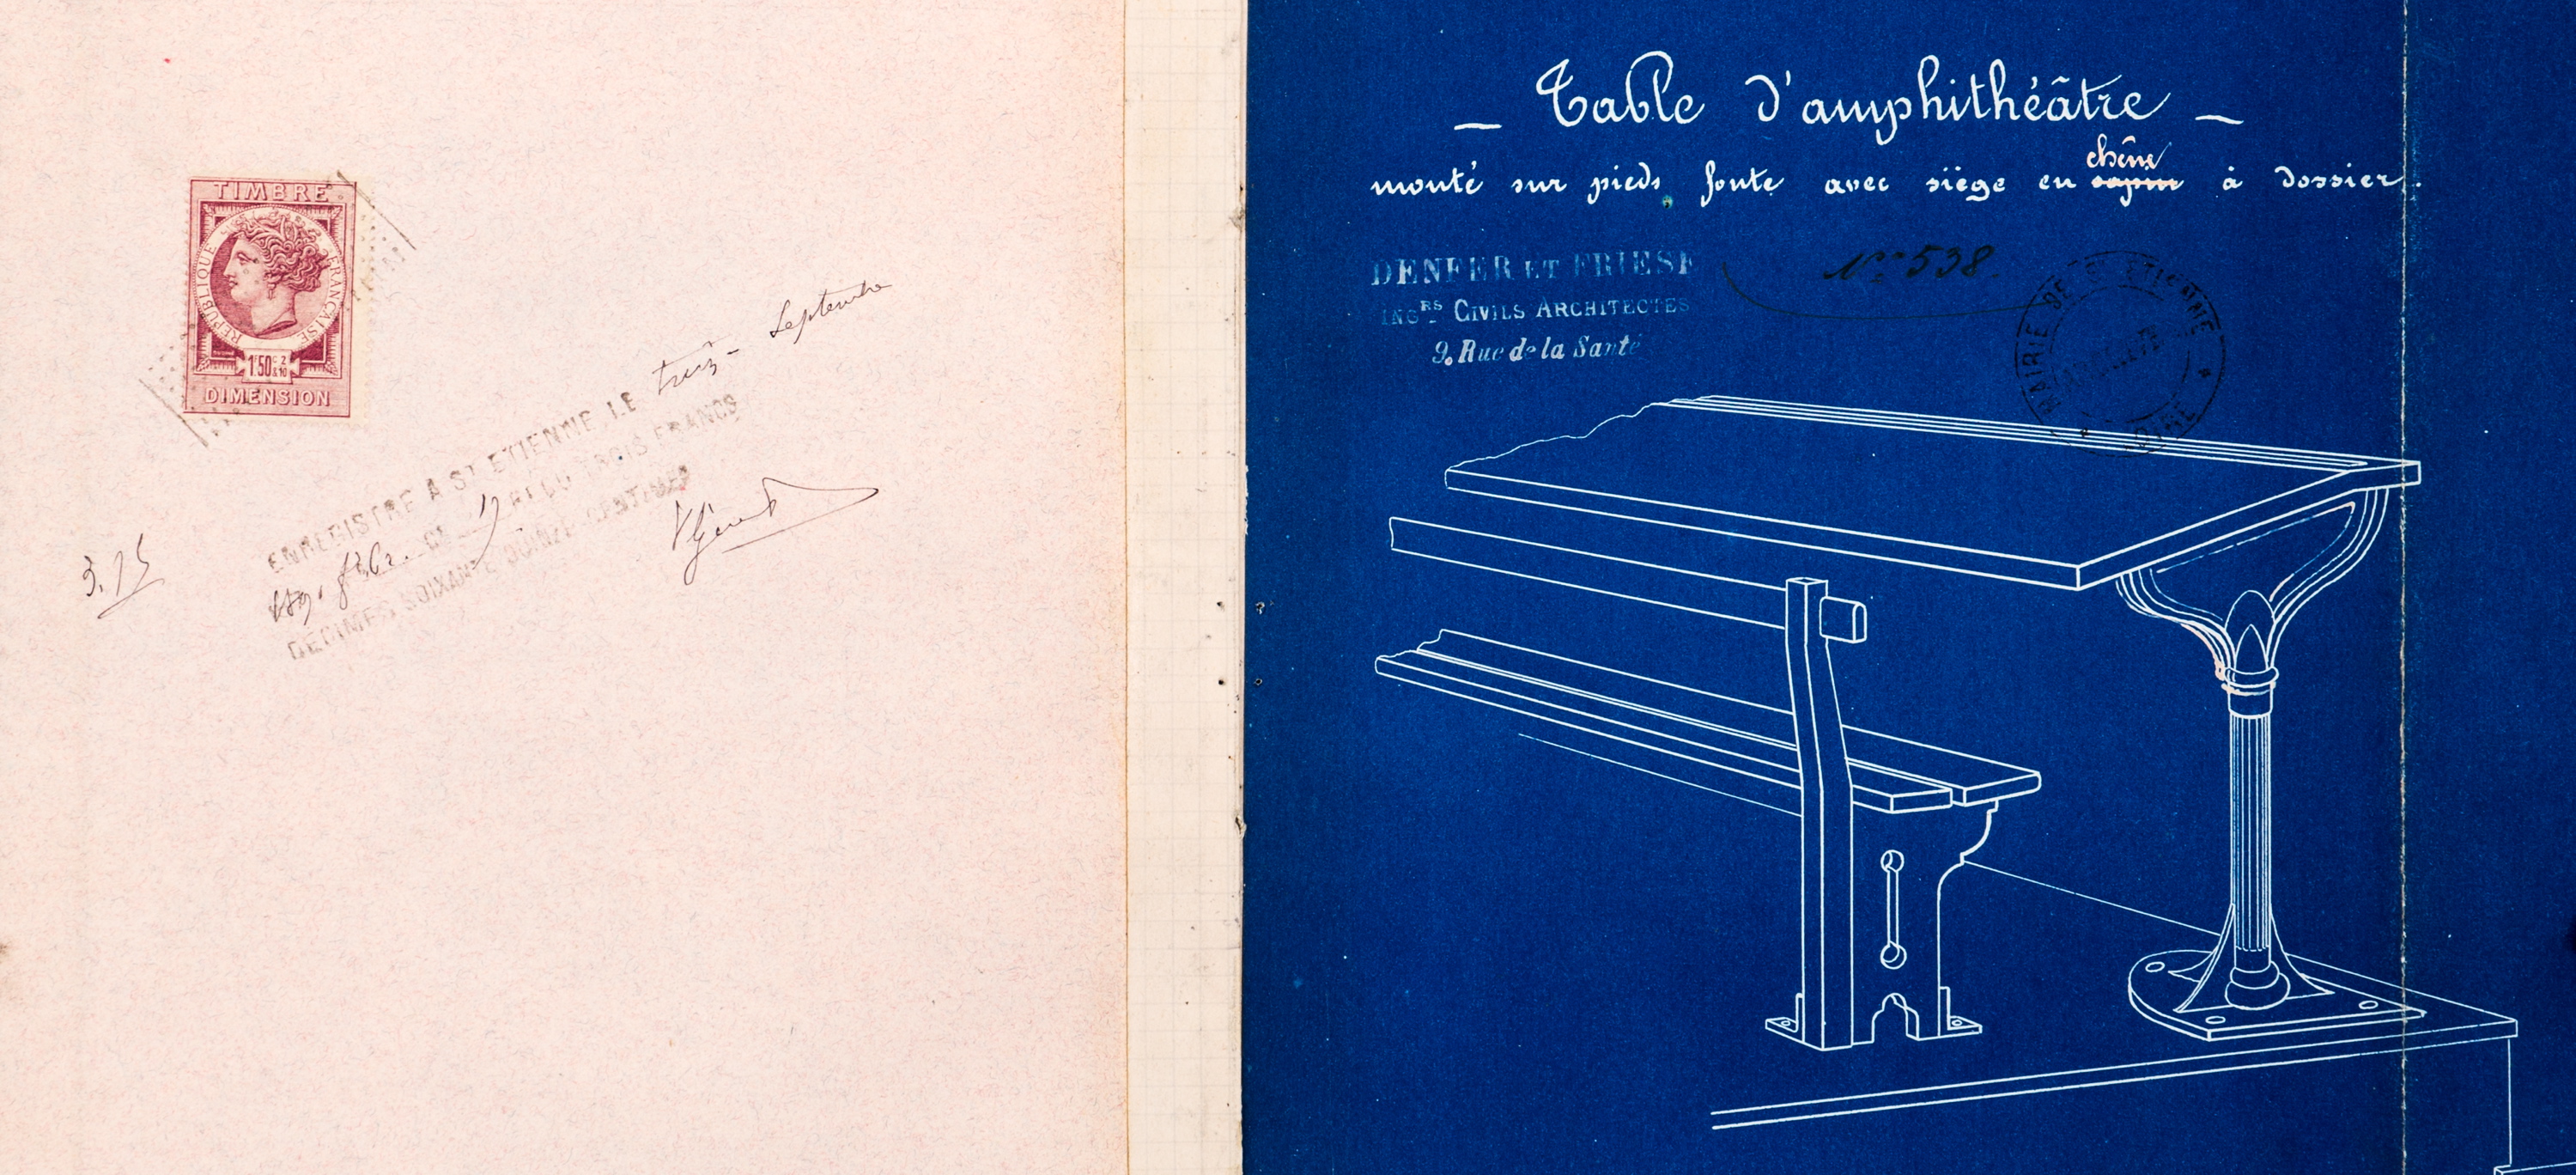 TIMBRE
RÉPUBLIQUE FRANÇAISE
1F50c 2/10
DIMENSION
trois Septembre
ENREGISTRE A ST ETIENNE, LE
REÇU TROIS FRANCS
DECIMES SOIXANTE QUINZE CENTIMES
3.75
_ Table d'amphithéâtre _
chêne
monté sur pieds fonte avec siège en sapin à dossier.
DENFER ET FRIESE
INGRS CIVILS ARCHITECTES
9, Rue de la Santé
No 538.
MAIRIE DE ST ETIENNE
LOIRE